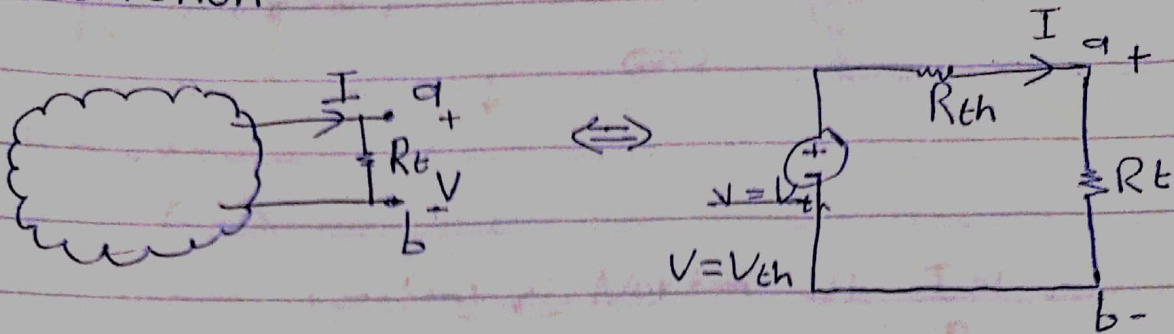 I a +
Rt
V
- b
⇔
I a +
Rth
+
-
V = Vth
Rt
V = Vth
b -